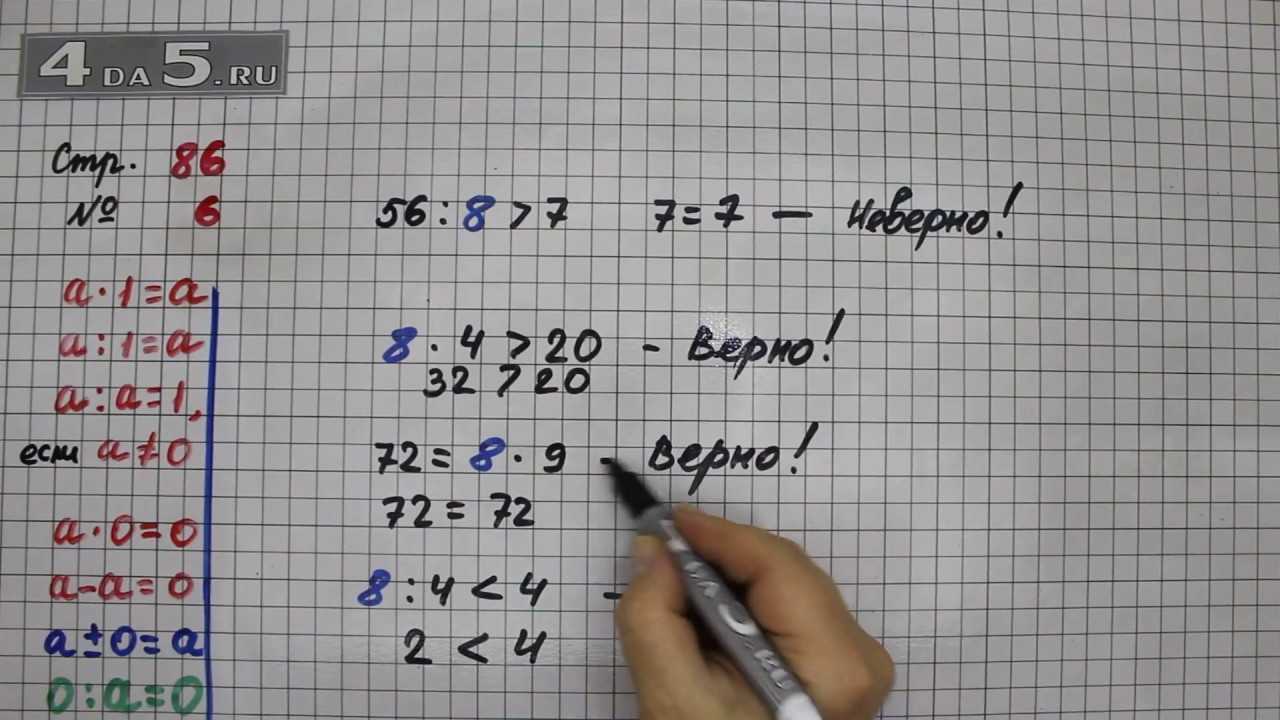 4DA5.RU
Стр. 86
№ 6
56:8>7 7=7 — Неверно!
a·1=a
a:1=a
a:a=1,
если a≠0
a·0=0
a-a=0
a±0=a
0:a=0
8·4>20 - Верно!
32>20
72=8·9 - Верно!
72=72
8:4<4 -
2<4